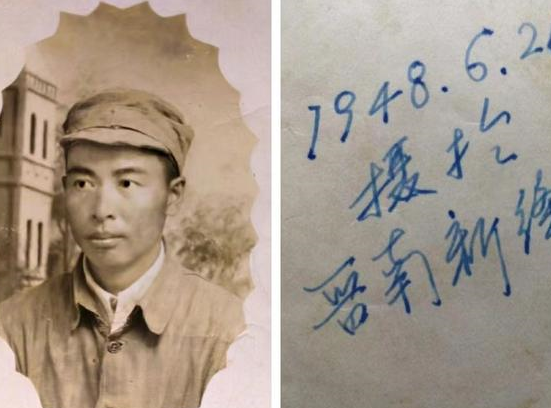 1948.6.2
摄扵
晋南新绛